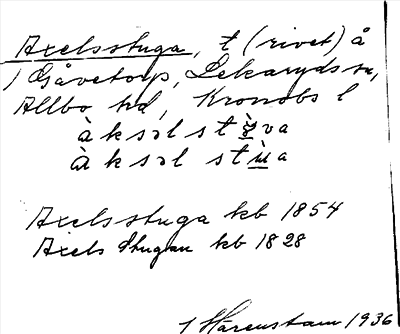 Axelsstuga, t (rivet) å
1 Gåvetorp, Lekaryds sn,
Allbo hd, Kronobs l
àksəl st va
àksəl stùa
Axelsstuga kb 1854
Axels Stugan kb 1828
Hårenstam 1936